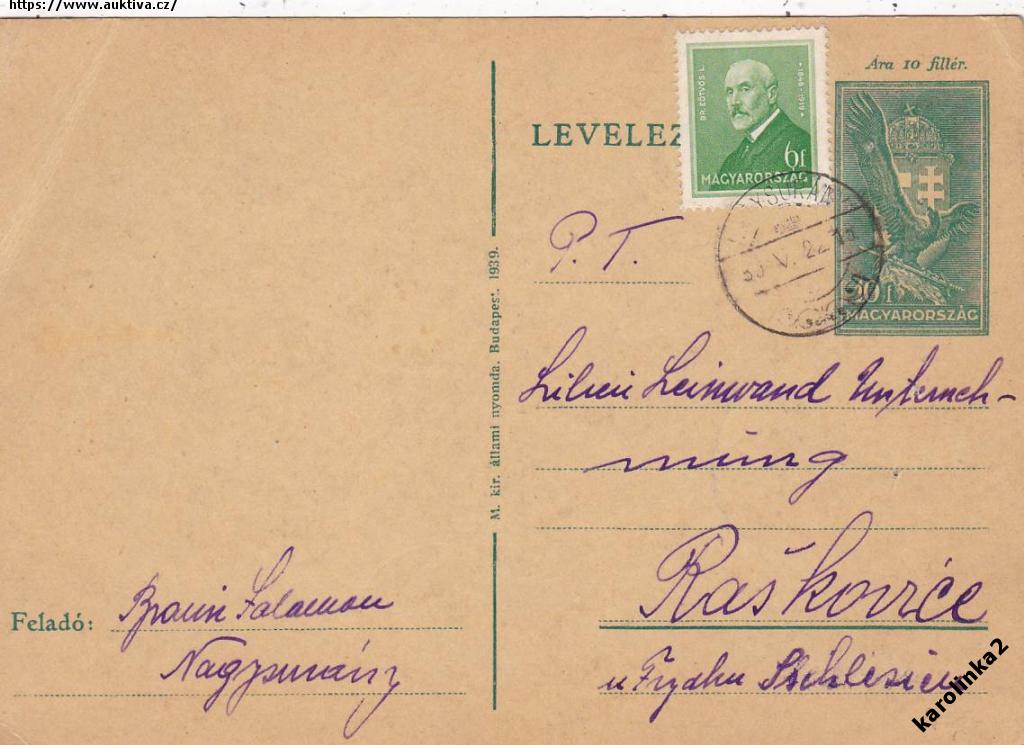 https://www.auktiva.cz/
Ára 10 fillér.
LEVELEZ
DR. EÖTVÖS L.
1848-1919
6f
MAGYARORSZÁG
10f
MAGYARORSZÁG
V. 22
P. T.
M. kir. állami nyomda. Budapest. 1939.
Leinwand Unterneh-
mung
Raškovice
u Frydku Schlesien
Feladó: Braun Salamon
karolinka2